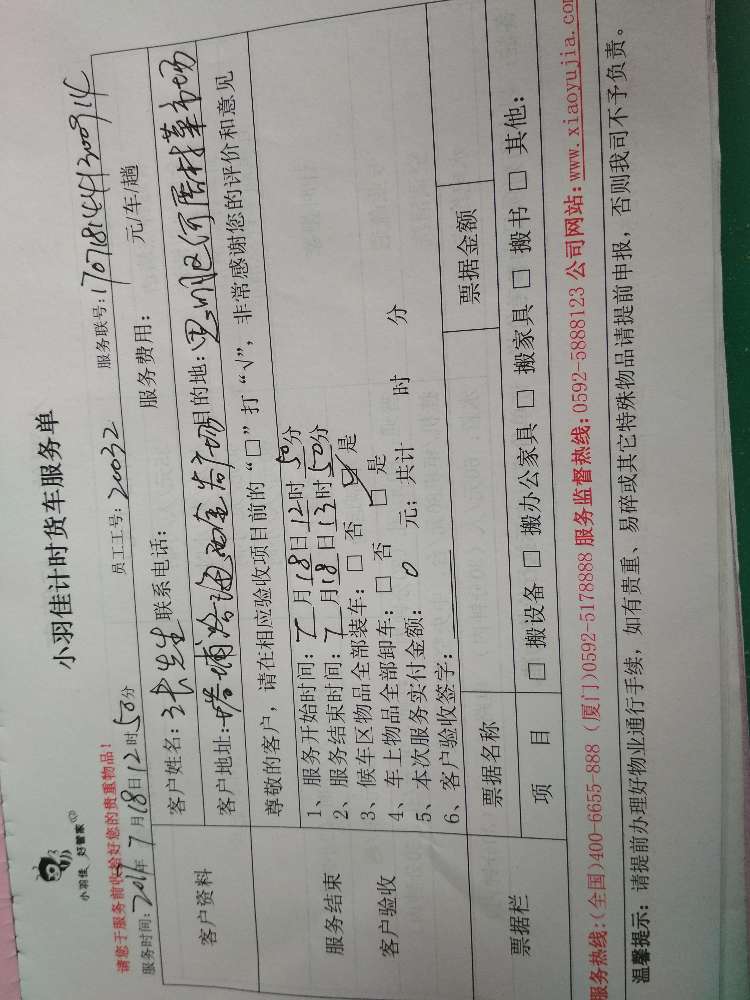 小羽佳 好管家
小羽佳计时货车服务单
请您于服务前收拾好您的贵重物品!
服务时间:2017年7月18日12时50分 员工工号:20032 服务联号:1707181441300914
客户资料
客户姓名:张先生 联系电话: 服务费用: 元/车/趟
客户地址: 目的地:思明区何厝村菜市场
尊敬的客户,请在相应验收项目前的“□”打“√”,非常感谢您的评价和意见
服务结束
客户验收
1、服务开始时间:7月18日12时50分
2、服务结束时间:7月18日13时50分
3、候车区物品全部装车:□ 否 ☑ 是
4、车上物品全部卸车:□ 否 □ 是
5、本次服务实付金额: 0 元;共计 时 分
6、客户验收签字:
票据栏
票据名称 票据金额
项 目 □ 搬设备 □ 搬办公家具 □ 搬家具 □ 搬书 □ 其他:
服务热线:(全国)400-6655-888 (厦门)0592-5178888 服务监督热线:0592-5888123 公司网站:www.xiaoyujia.com
温馨提示:请提前办理好物业通行手续,如有贵重、易碎或其它特殊物品请提前申报,否则我司不予负责。